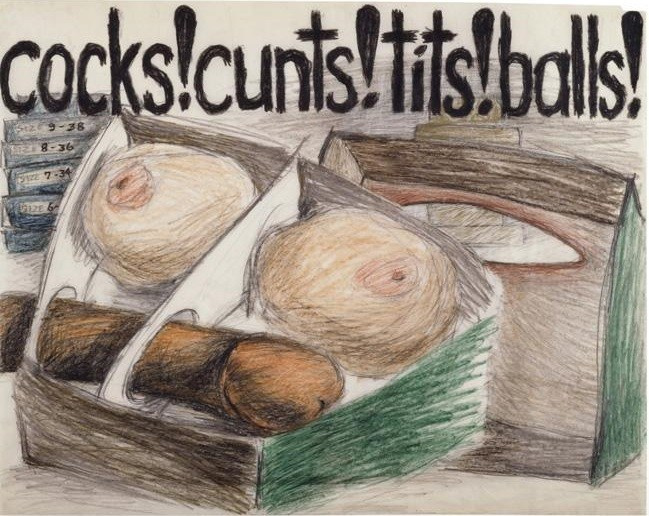 cocks!cunts!tits!balls!
SIZE 9-38
SIZE 8-36
SIZE 7-34
SIZE 6-